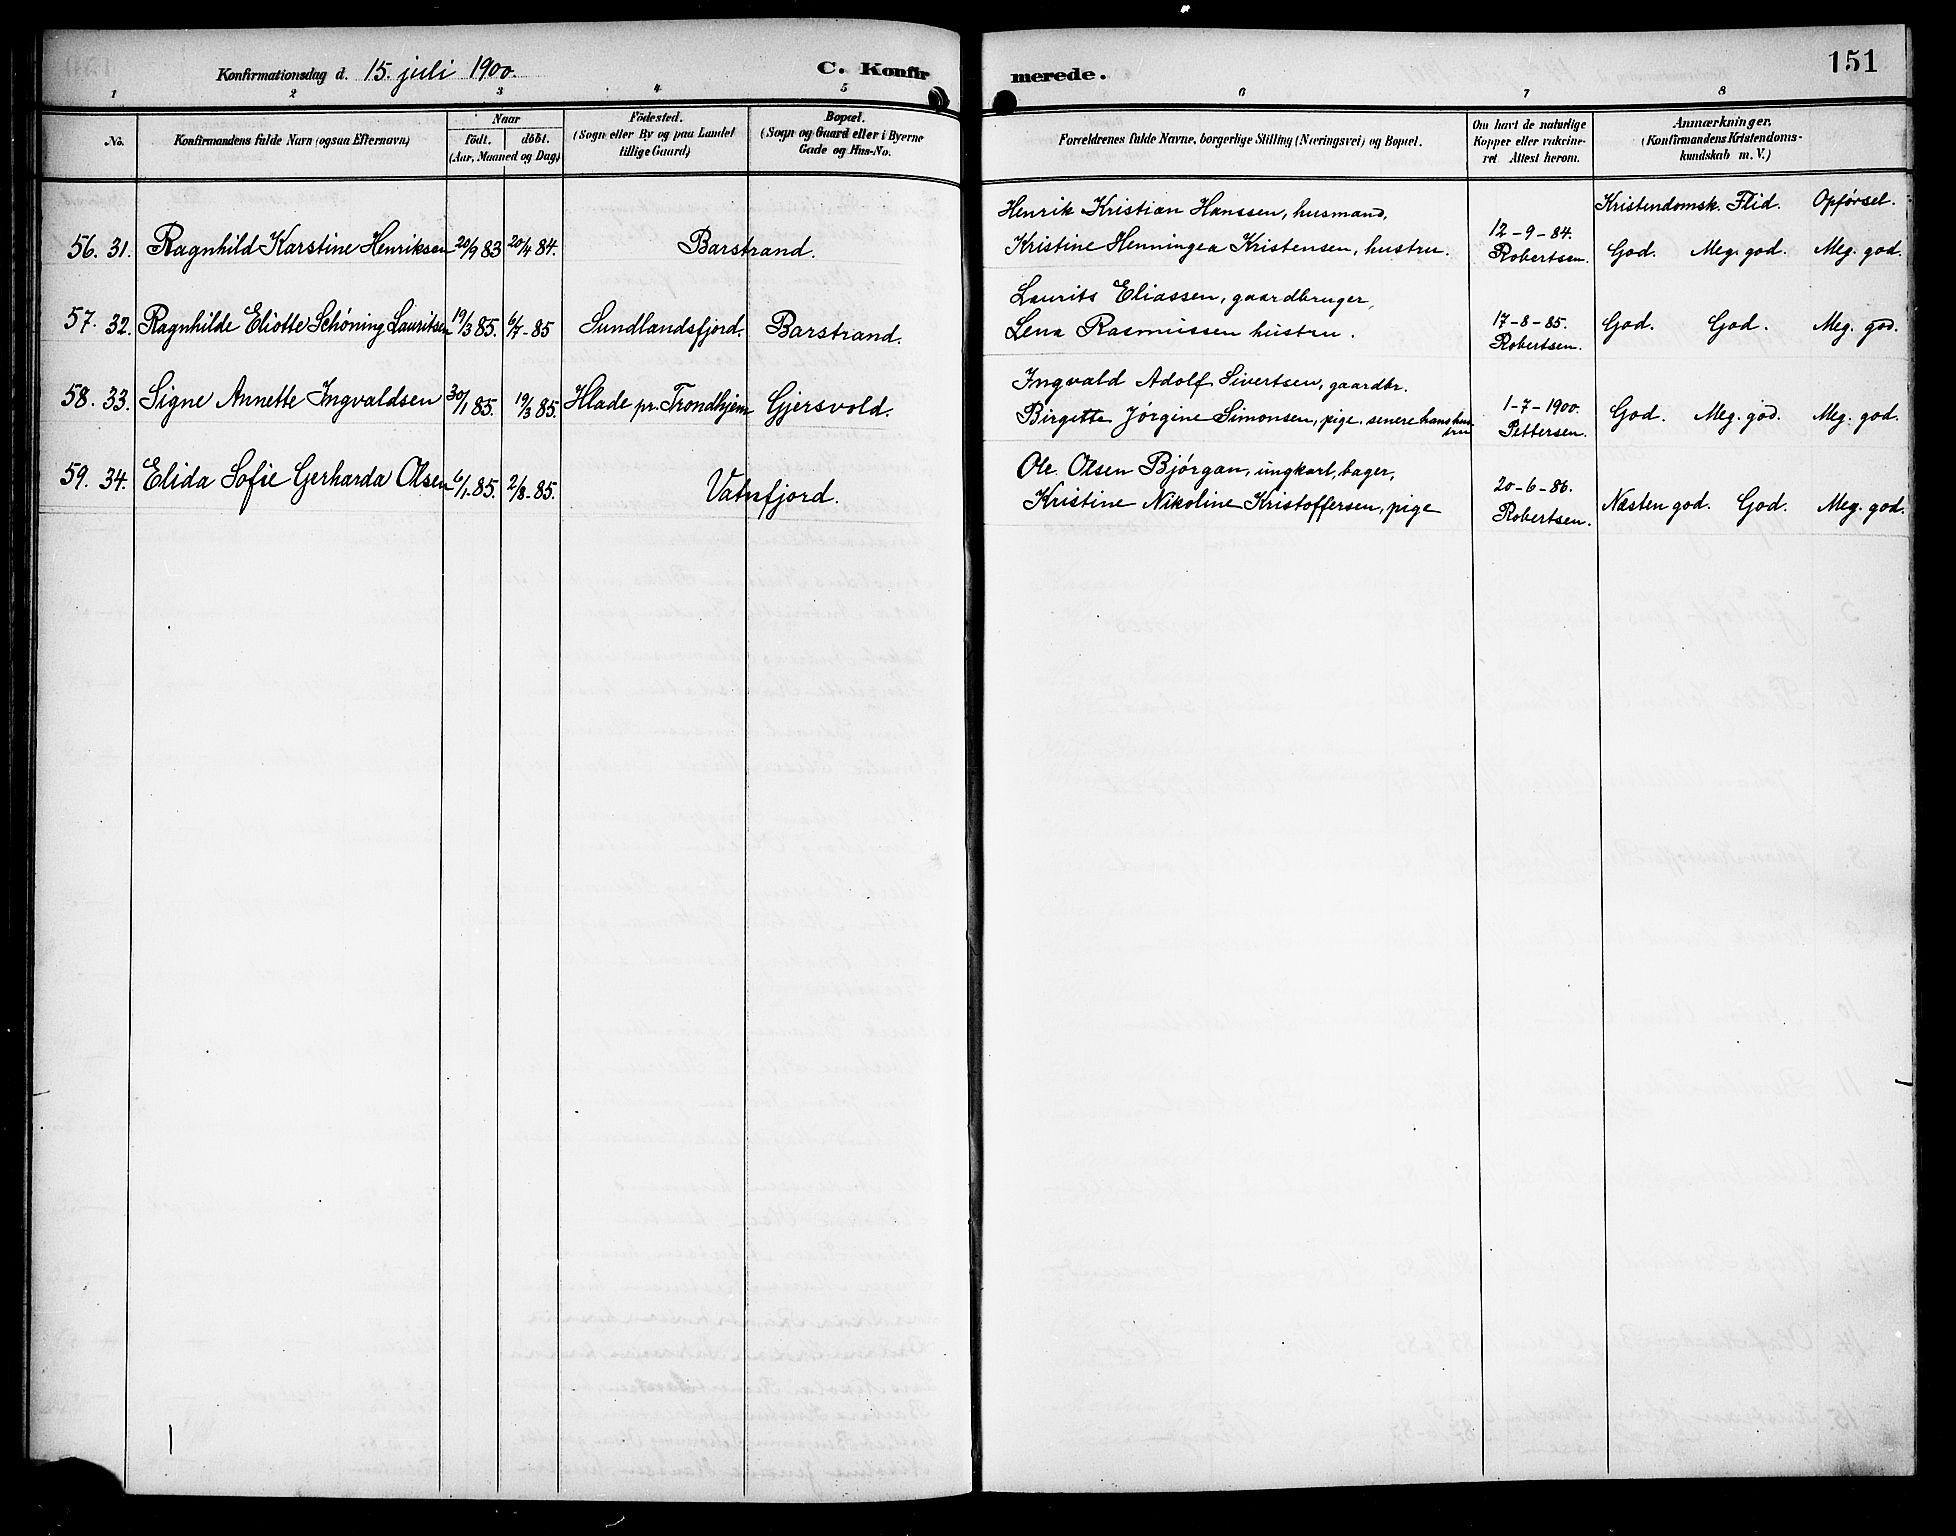 Konfirmationsdag d. 15. juli 1900. C. Konfirmerede. 151
1 2 3 4 5 6 7 8
No. Konfirmandens fulde Navn (ogsaa Efternavn) Naar födt. döbt. (Aar, Maaned og Dag) Födested. (Sogn eller By og paa Landet tillige Gaard) Bopæl. (Sogn og Gaard eller i Byerne Gade og Hus-No. Forældrenes fulde Navne, borgerlige Stilling (Næringsvei) og Bopæl. Om havt de naturlige Kopper eller vakcineret Attest herom. Anmærkninger. (Konfirmandens Kristendomskundskab m. V.)
Kristendomsk. Flid. Opførsel.
Henrik Kristian Hanssen, husmand,
56. 31. Ragnhild Karstine Henriksen 20/9 83 20/4 84. Barstrand. Kristine Henningea Kristensen, hustru. 12-9-84. Robertsen. God. Meg. god. Meg. god.
Laurits Eliassen, gaardbruger,
57. 32. Ragnhilde Eliotte Schøning Lauritsen 19/3 85. 6/7-85 Sundlandsfjord. Barstrand. Lena Rasmussen hustru. 17-8-85. Robertsen. God. God. Meg. god.
Ingvald Adolf Sivertsen, gaardbr.
58. 33. Signe Annette Ingvaldsen 30/1 85. 19/3 85. Hlade pr. Trondhjem Gjersvold. Birgitte Jørgine Simonsen, pige, senere hans hustru 1-7-1900. Pettersen. God. Meg. god. Meg. god.
Ole Olsen Bjørgan, ungkarl, bager,
59. 34. Elida Sofie Gerharda Olsen 6/1.85. 2/8-85. Vatnfjord. Kristine Nikoline Kristoffersen, pige 20-6-86. Robertsen. Næsten god. God. Meg. god.